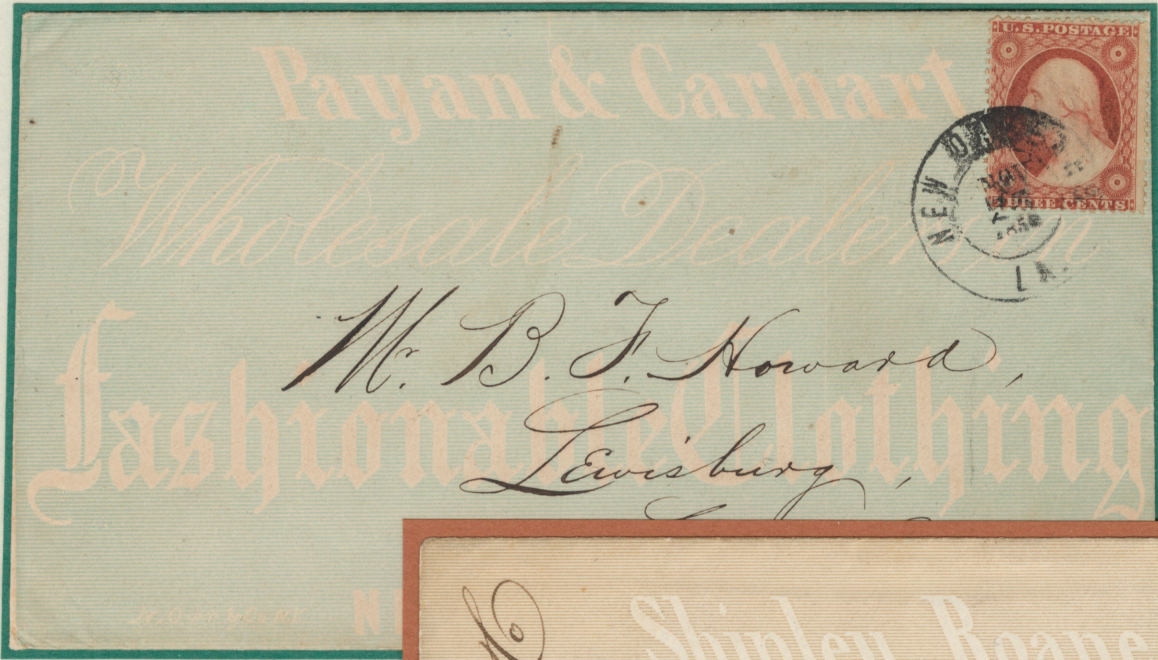 Payan & Carhart
Wholesale Dealers in
Fashionable Clothing
U.S. POSTAGE
THREE CENTS
NEW
LA.
Mr. B. F. Howard,
Lewisburg,
Shipley Roane